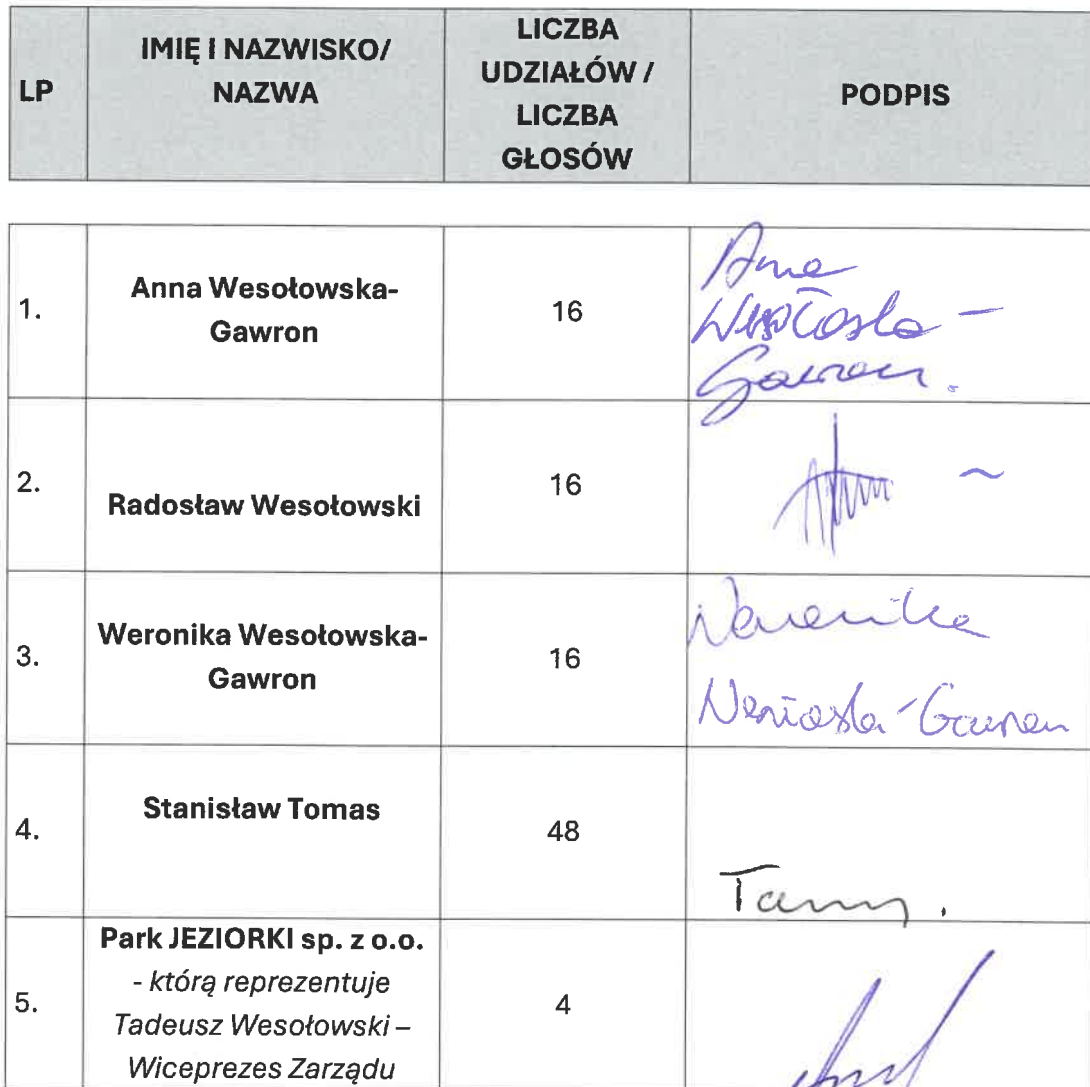 LP
IMIĘ I NAZWISKO/
NAZWA
LICZBA
UDZIAŁÓW /
LICZBA
GŁOSÓW
PODPIS
1.
Anna Wesołowska-
Gawron
16
2.
Radosław Wesołowski
16
3.
Weronika Wesołowska-
Gawron
16
Weronika
4.
Stanisław Tomas
48
5.
Park JEZIORKI sp. z o.o.
- którą reprezentuje
Tadeusz Wesołowski –
Wiceprezes Zarządu
4